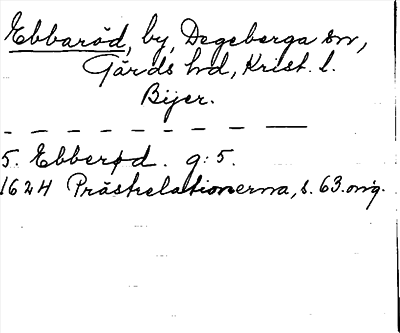 Ebbaröd, by, Degeberga sn,
Gärds hd, Krist. l.
Bijer.
5. Ebberød. g: 5.
1624 Prästrelationerna, s. 63. orig.